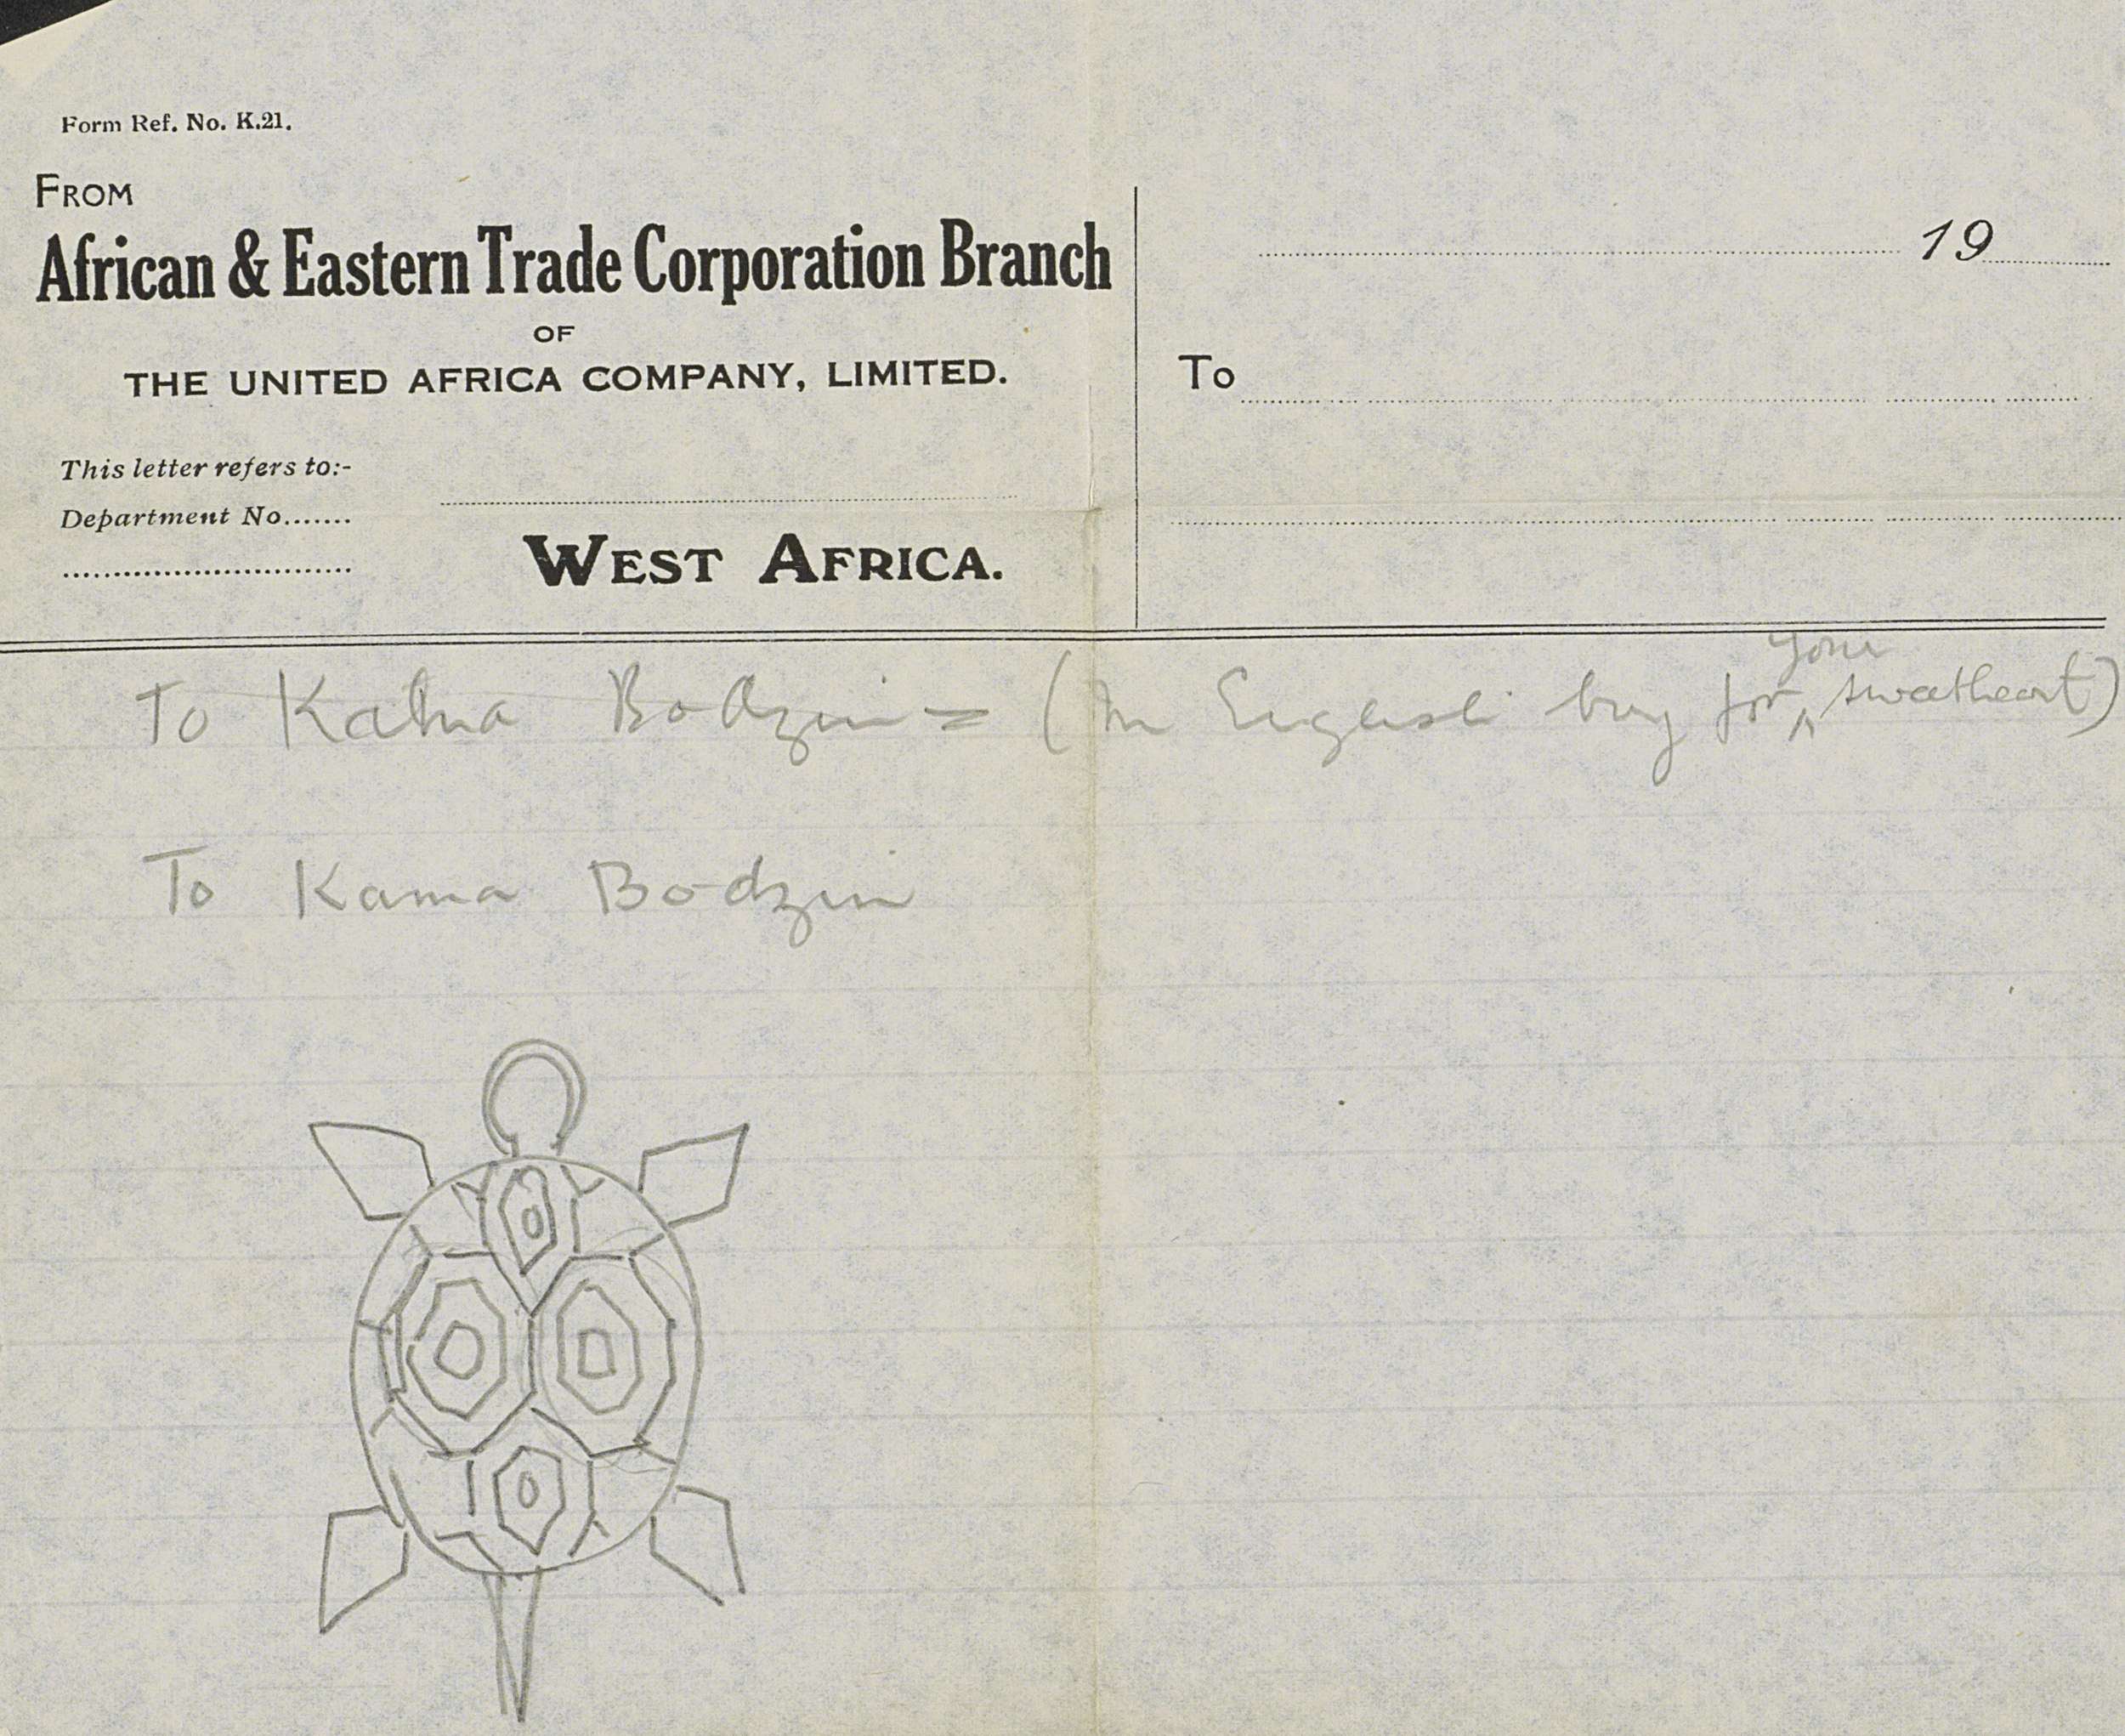 Form Ref. No. K.21.
FROM
African & Eastern Trade Corporation Branch
OF
THE UNITED AFRICA COMPANY, LIMITED.
This letter refers to:-
Department No.......
WEST AFRICA.
19
To
To Bodzin = (In English buy for your sweetheart)
To Kama Bodzin